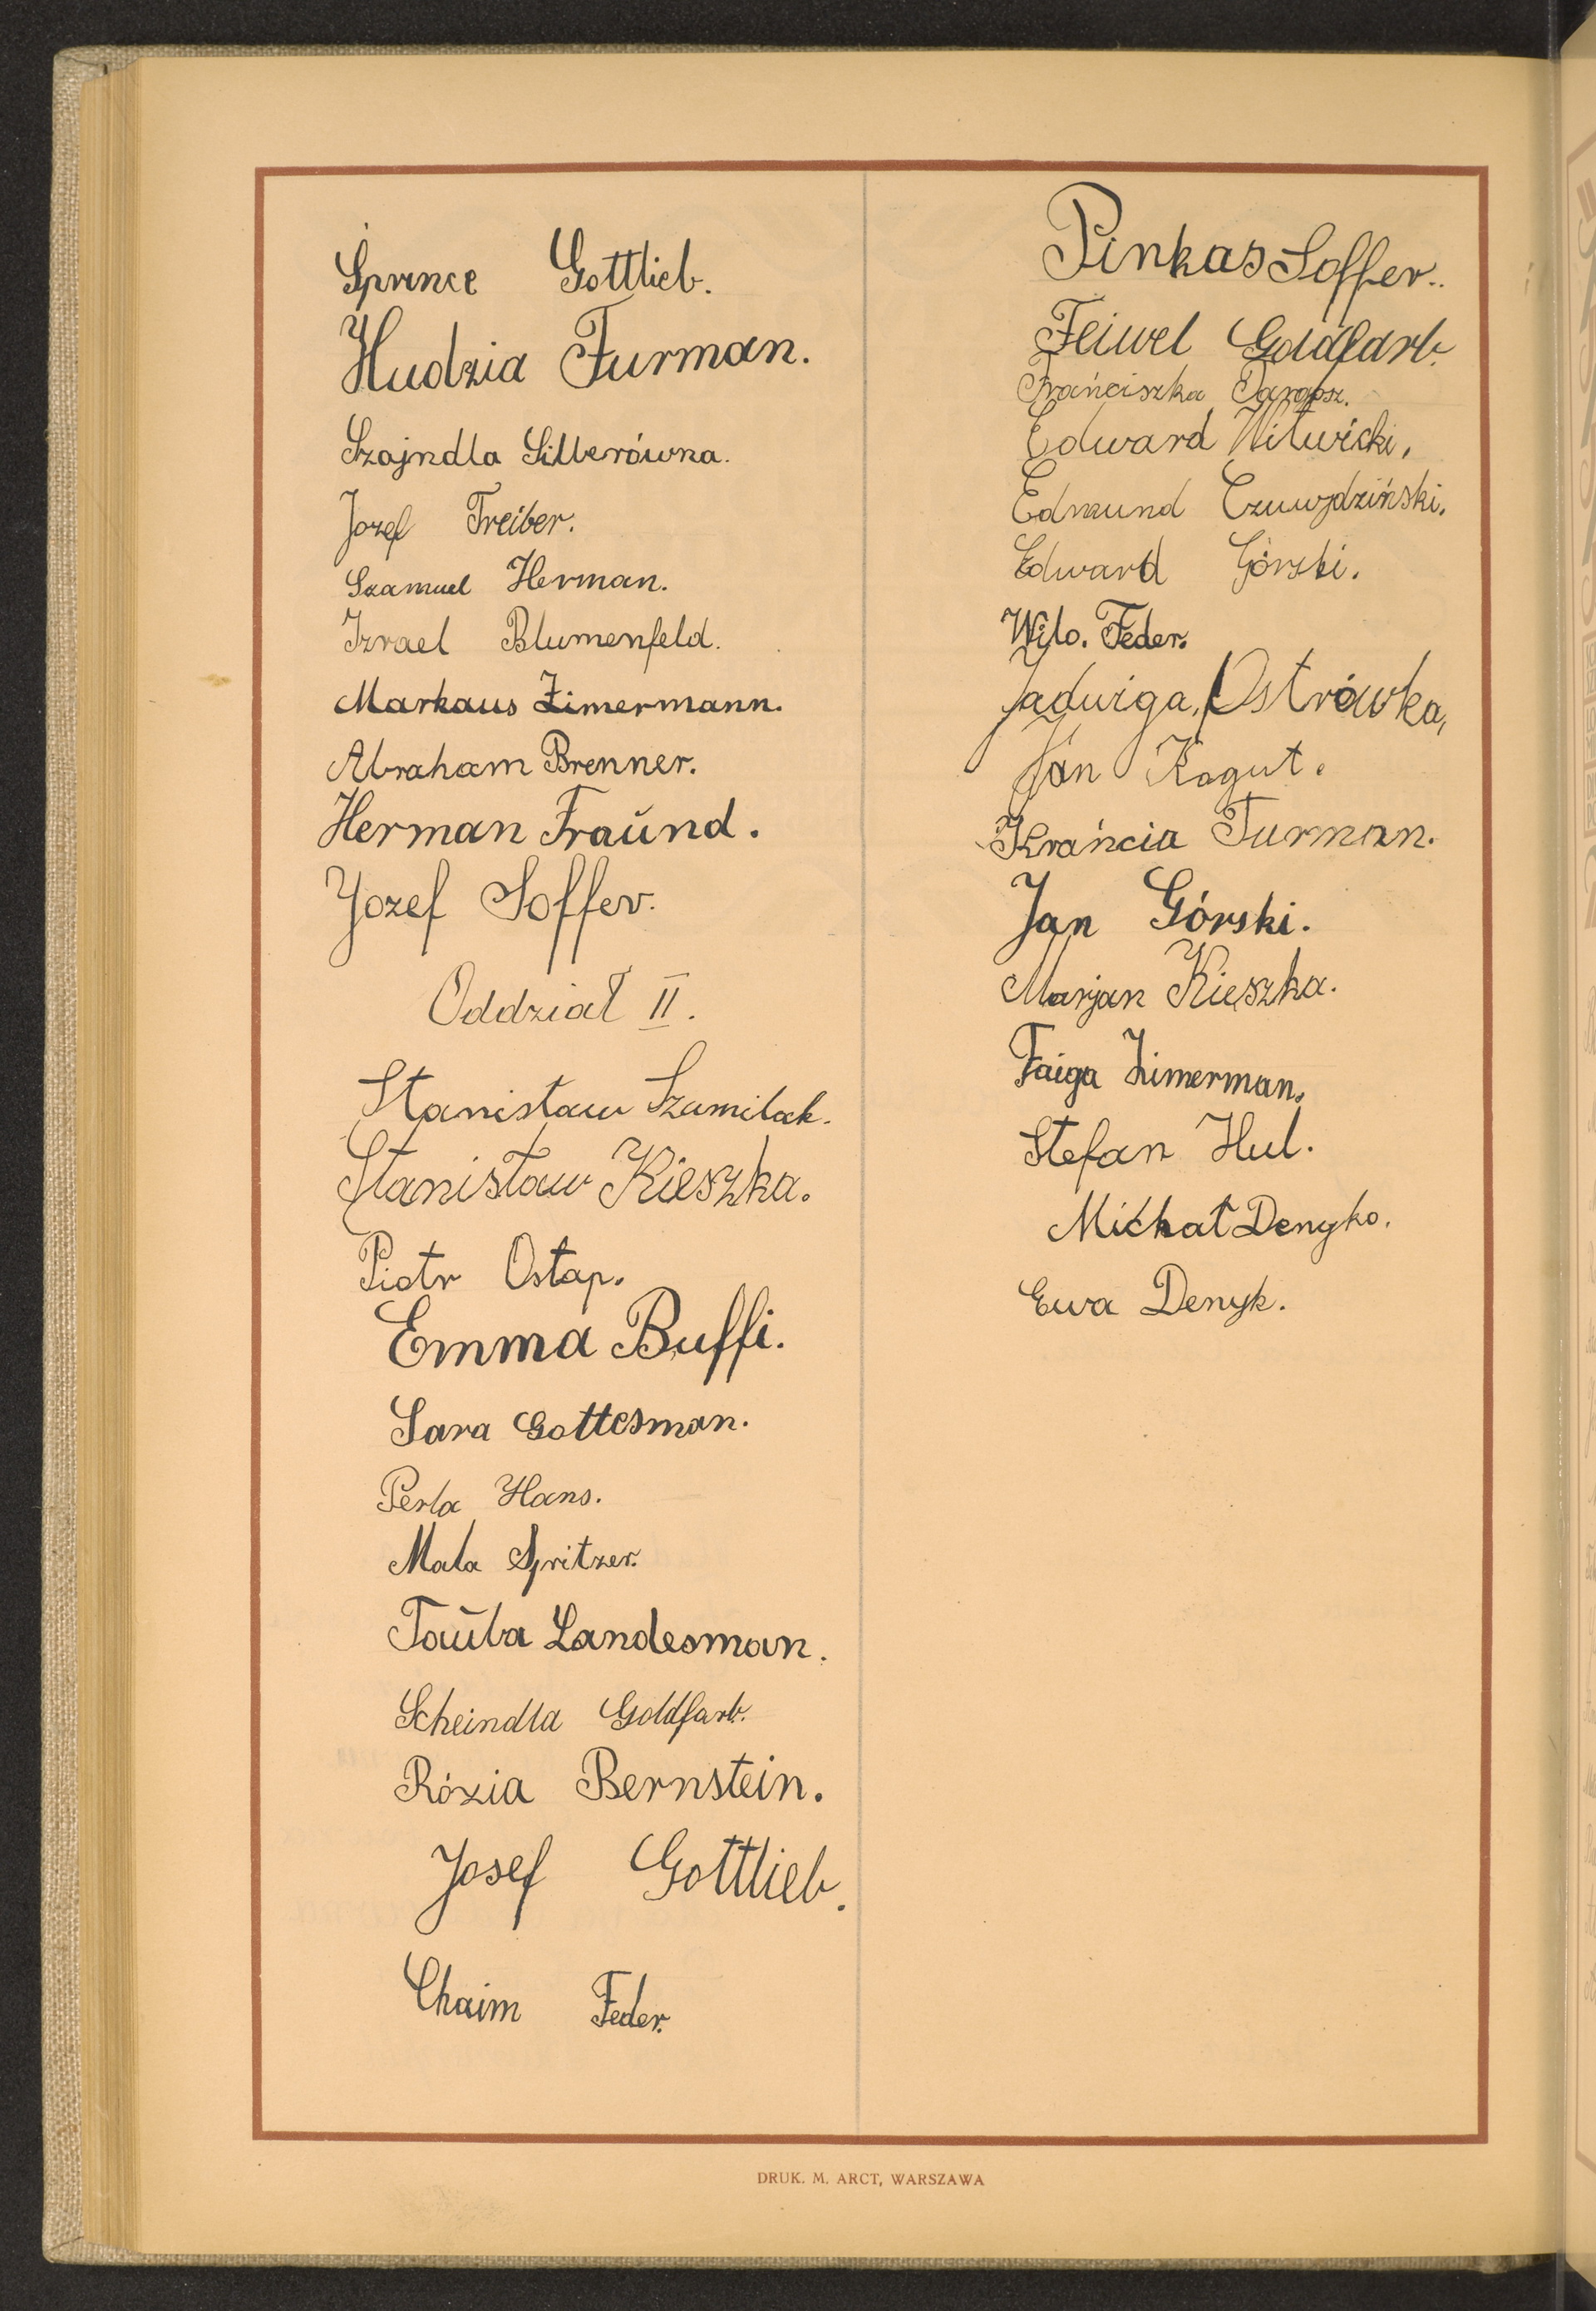 Sprence Gottlieb.
Hudzia Furman.
Szajndla Silberówna.
Jozef Treiber.
Szamuel Herman.
Izrael Blumenfeld.
Markaus Zimermann.
Abraham Brenner.
Herman Fraŭnd.
Jozef Soffer.
Oddział II.
Stanisław Szumilak.
Stanisław Kieszka.
Piotr Ostap.
Emma Buffi.
Sara Gottesman.
Perla Hans.
Mala Spritzer.
Taŭba Landesman.
Scheindla Goldfarb.
Rózia Bernstein.
Josef Gottlieb.
Chaim Feder.
Pinkas Soffer..
Feiwel Goldfarb.
Frańciszka
Edward Witwicki.
Edmund
Edward Górski.
Wilo. Feder.
Jadwiga, Ostrówka,
Jan Kogut.
Furman.
Jan Górski.
Marjan Kieszka.
Faiga Zimerman.
Stefan Hul.
Michał Denyko.
Ewa Denyk.
DRUK. M. ARCT, WARSZAWA